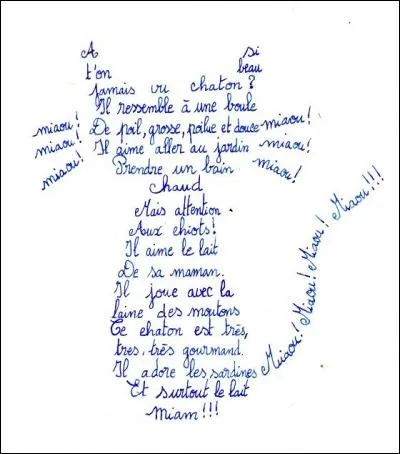 A si
t'on beau
jamais vu chaton?
Il ressemble à une boule
De poil, grosse, poilue et douce
Il aime aller au jardin
Prendre un bain
chaud
Mais attention
Aux chiots!
Il aime le lait
De sa maman.
Il joue avec la
laine des moutons
Ce chaton est très,
tres, très gourmand.
Il adore les sardines
Et surtout le lait
Miam!!!
miaou!
miaou!
miaou!
miaou!
miaou!
miaou!
Miaou! Miaou! Miaou! Miaou!!!